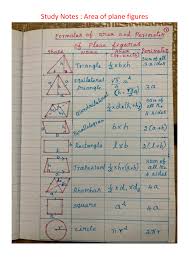 Study Notes : Area of plane figures
Formulas of area and Perimeter
of Plane figures
Shape Name Area Perimeter
Triangle 1/2 x b x h sum of all 3 sides
Equilateral triangle √3/4 a² 3a
Quadrilateral 1/2 x d x (h₁+h₂) sum of all 4 sides
Parallelogram b x h 2(a+b)
Rectangle l x b 2(l+b)
Trapezium 1/2 x h x (a+b) sum of 4 sides
Rhombus 1/2 x d₁ x d₂ 4a
square a² 4a
circle πr² 2πr